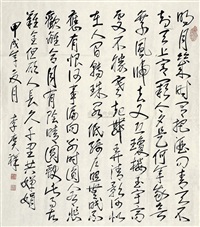 明月幾時有把酒問青天不
知天上宮闕今夕是何年我欲
乘風歸去又恐瓊樓玉宇高
處不勝寒起舞弄清影何似
在人間轉朱閣低綺戶照無眠不
應有恨何事長向別時圓人有悲
歡離合月有陰晴圓缺此事古
難全但願人長久千里共嬋娟
甲戌年 月 李